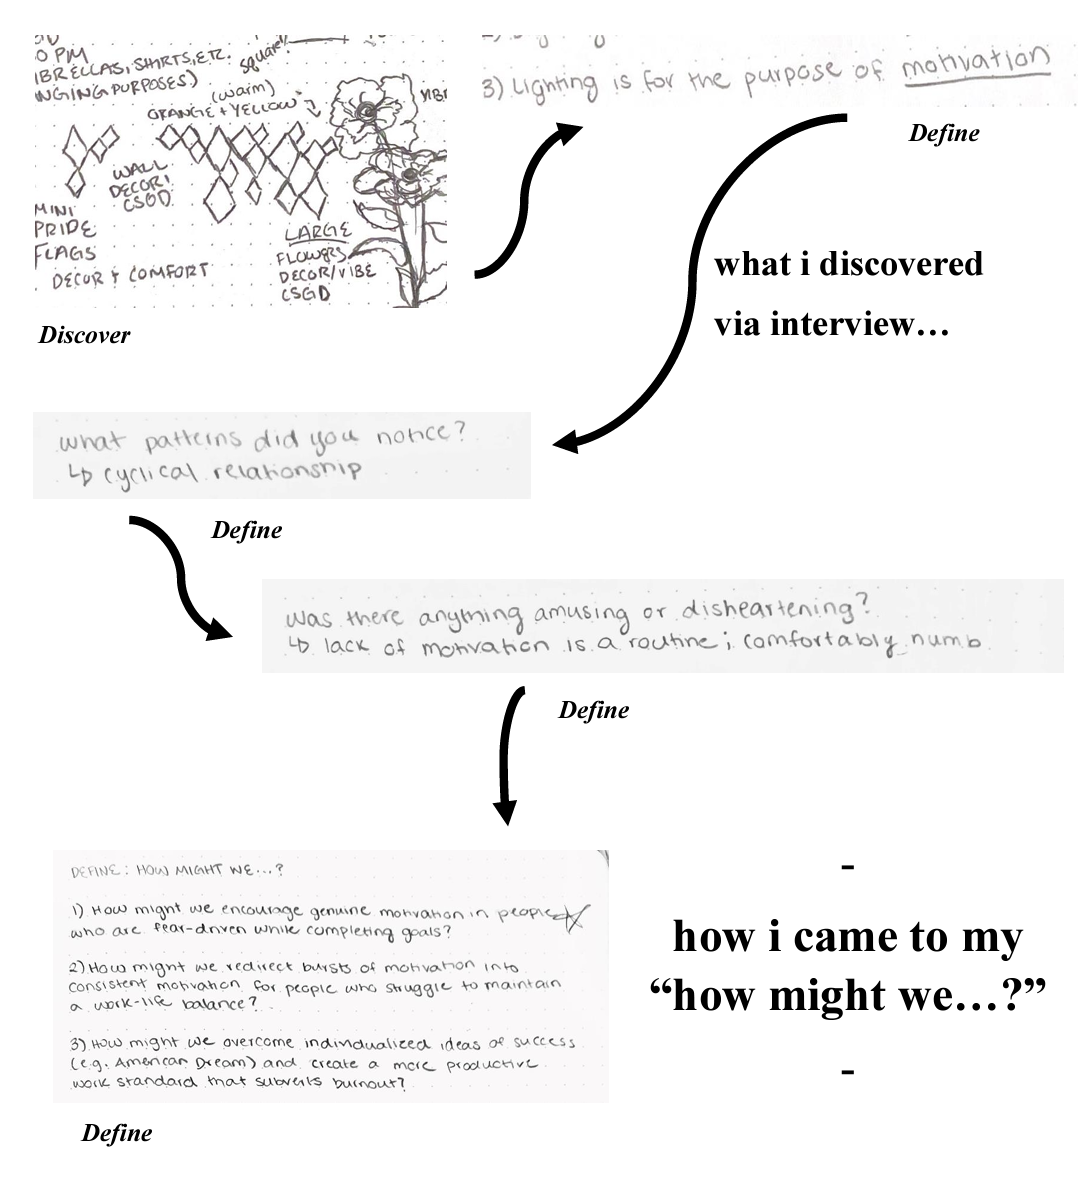 0 PM
IBRELLAS, SHIRTS, ETC.
square!
NGING PURPOSES)
(warm)
ORANGE + YELLOW
WALL
DECOR!
CSGD
MINI
PRIDE
FLAGS
DECOR & COMFORT
LARGE
FLOWERS
DECOR/VIBE
CSGD
Discover
3) Lighting is for the purpose of motivation
Define
what i discovered
via interview…
what patterns did you notice?
↳ cyclical relationship
Define
was there anything amusing or disheartening?
↳ lack of motivation is a routine; comfortably numb
Define
DEFINE: HOW MIGHT WE...?
1) How might we encourage genuine motivation in people
who are fear-driven while completing goals?
2) How might we redirect bursts of motivation into
consistent motivation for people who struggle to maintain
a work-life balance?
3) How might we overcome individualized ideas of success
(e.g. American Dream) and create a more productive
work standard that subverts burnout?
Define
-
how i came to my
“how might we…?”
-